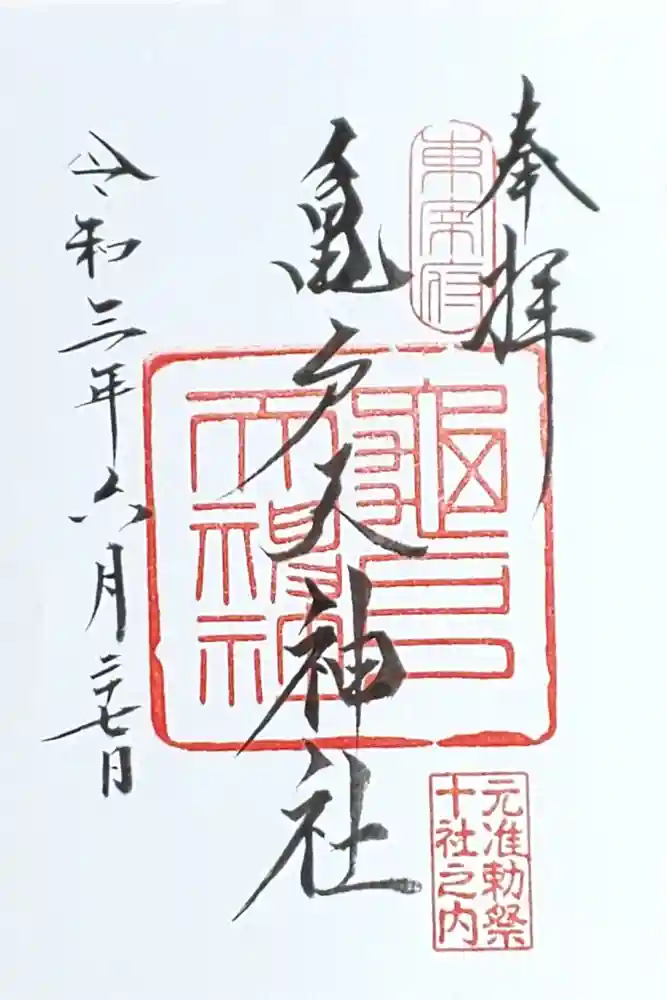 奉拝
東宰府
亀戸天神社
令和三年六月二十七日
元准勅祭
十社之内